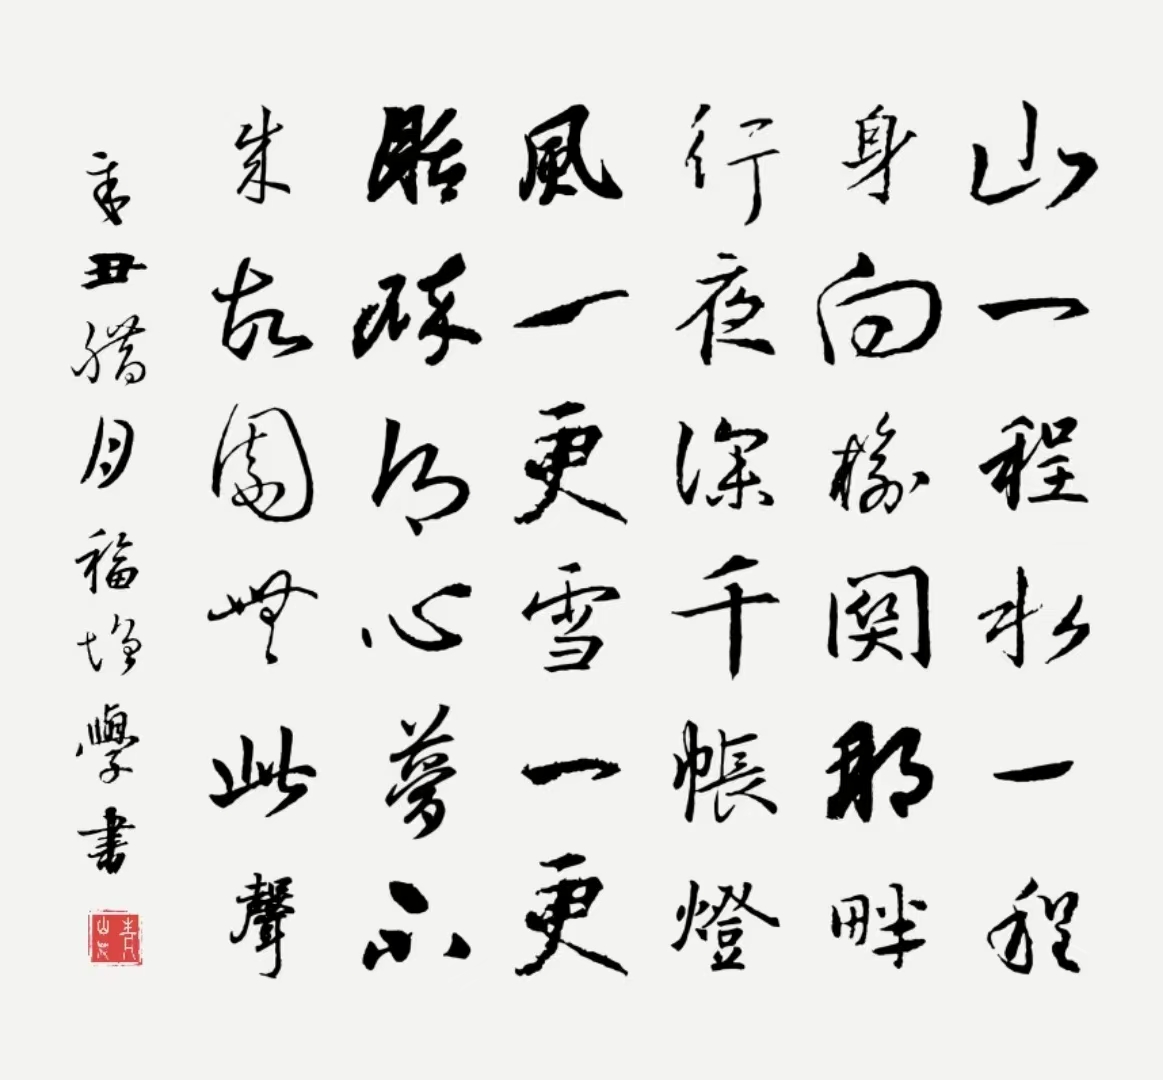 山一程水一程
身向榆関那畔
行夜深千帳燈
風一更雪一更
聒碎鄉心夢不
成故園無此聲
辛丑腊月福增學書